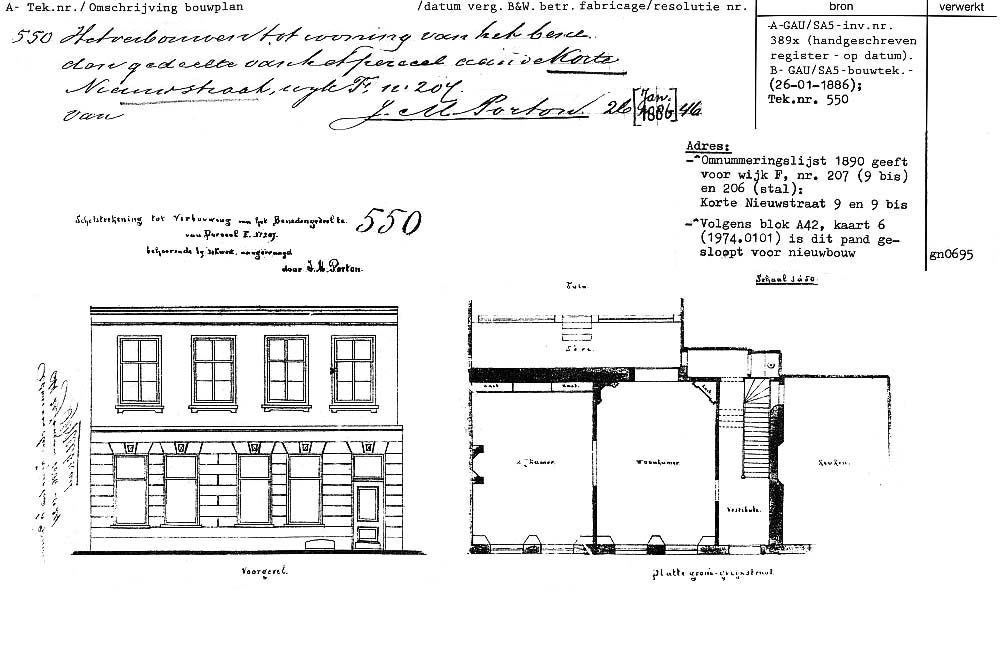 A- Tek.nr./ Omschrijving bouwplan /datum verg. B&W. betr. fabricage/resolutie nr. bron verwerkt
550 Het verbouwen tot woning van het bene
den gedeelte van het perceel aan de Korte
Nieuwstraat, wijk F. nº 207.
van J. M. Porton. 26 [Jan. 1886] 46
A-GAU/SA5-inv.nr.
389x (handgeschreven
register - op datum).
B- GAU/SA5-bouwtek.-
(26-01-1886);
Tek.nr. 550
Adres:
-^Omnummeringslijst 1890 geeft
voor wijk F, nr. 207 (9 bis)
en 206 (stal):
Korte Nieuwstraat 9 en 9 bis
-^Volgens blok A42, kaart 6
(1974.0101) is dit pand ge-
sloopt voor nieuwbouw
gn0695
Schetsteekening tot Verbouwing van het Benedengedeelte
van Perceel F. Nº 207.
behoorende bij
door J. M. Porton.
550
Schaal 1 à 50.
Tuin.
Serre.
kast
kast.
kast
Kamer.
Woonkamer.
Keuken.
Vestibule.
Voorgevel.
Platte grond